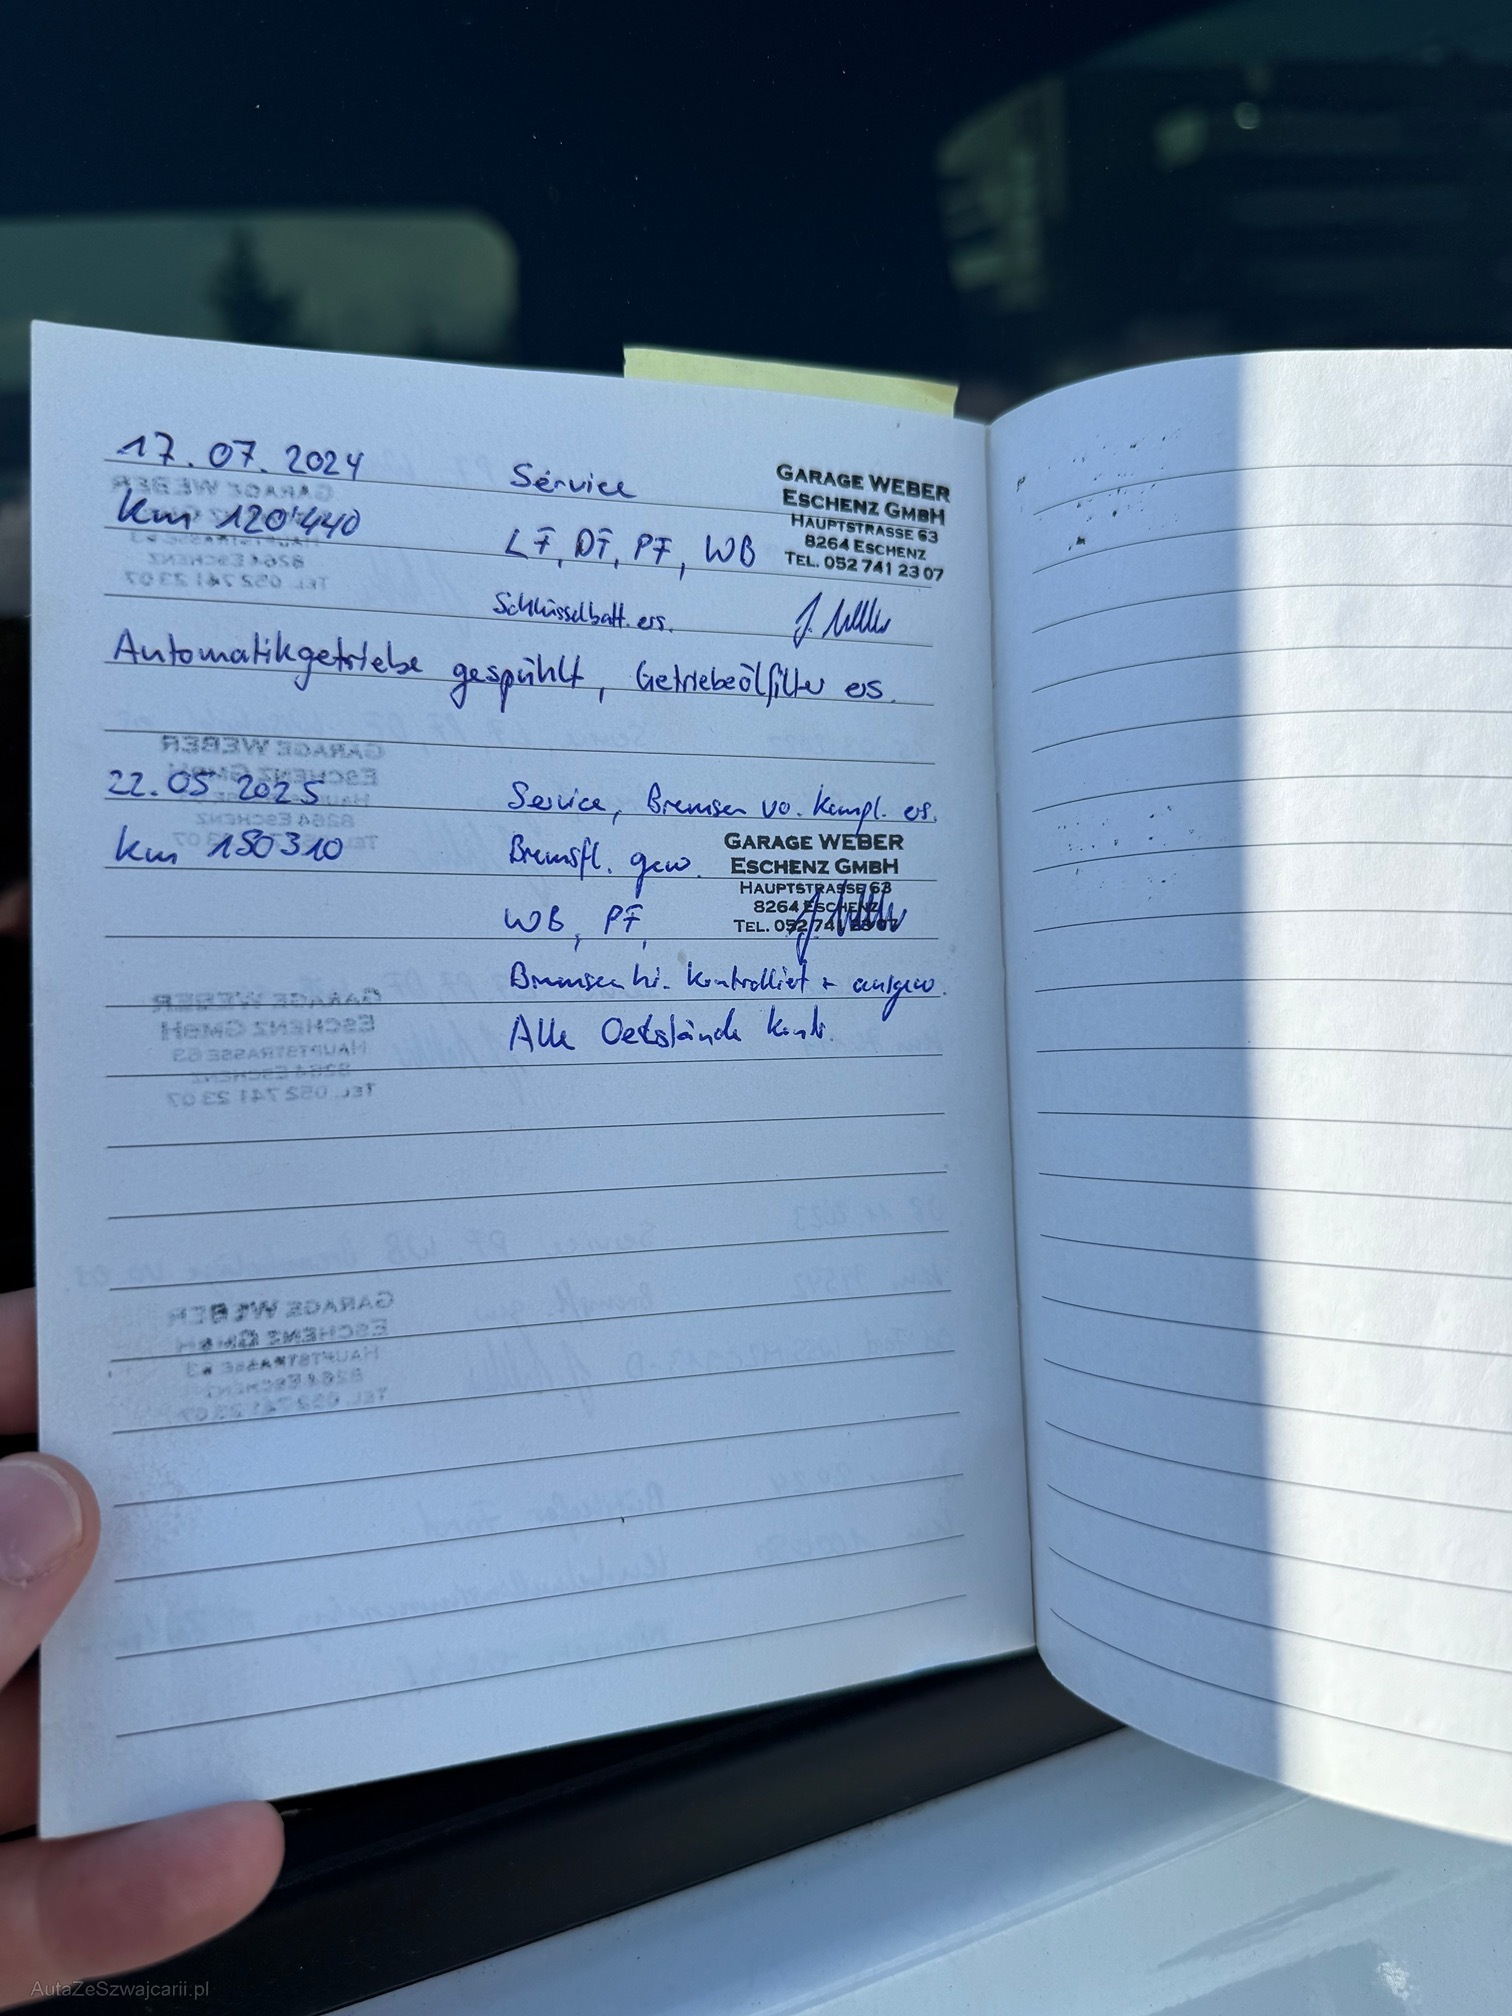 17.07.2024 Service
GARAGE WEBER
ESCHENZ GMBH
HAUPTSTRASSE 63
8264 ESCHENZ
TEL. 052 741 23 07
km 120'440 LF, DF, PF, WB
Schlüsselbatt. ers.
Automatikgetriebe gespühlt, Getriebeölfilter ers.
22.05 2025 Service, Bremsen vo. kompl. ers.
km 150310 Bremsfl. gew.
GARAGE WEBER
ESCHENZ GMBH
HAUPTSTRASSE 63
8264 ESCHENZ
TEL. 052 741 23 07
WB, PF,
Bremsen hi. kontrolliert + ausgew.
Alle Oelstände kont.
AutaZeSzwajcarii.pl